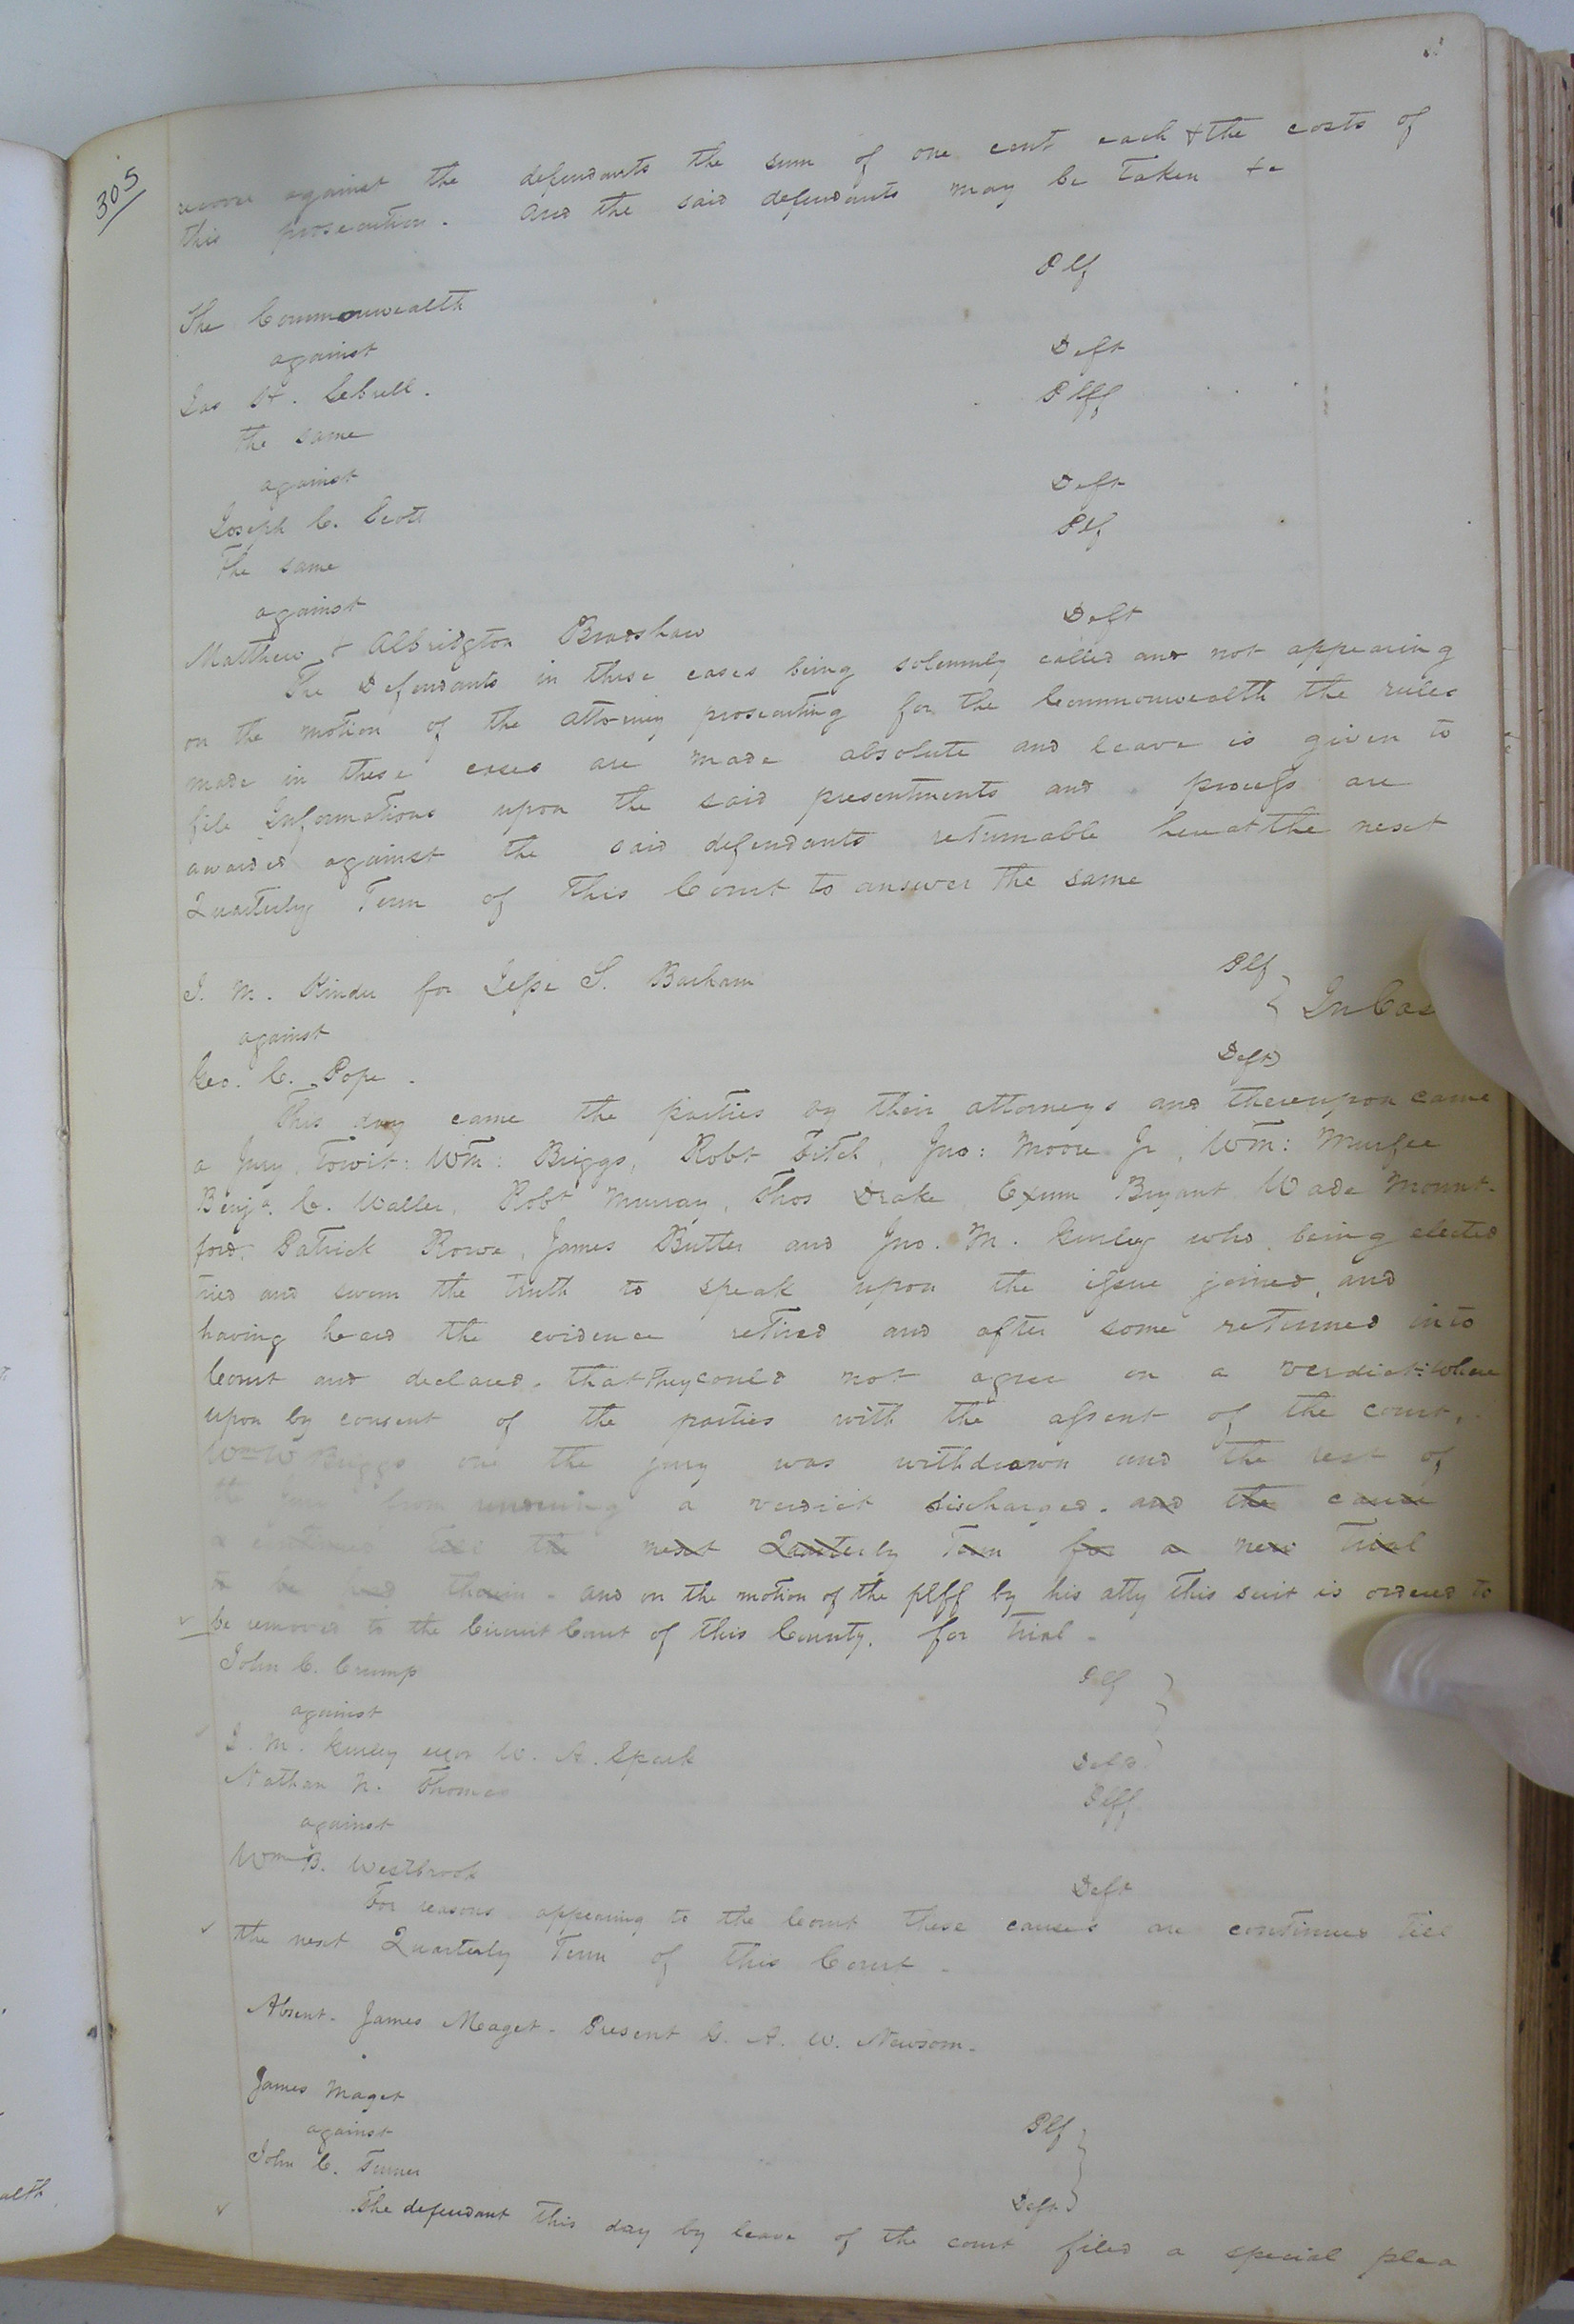 305
against the defendants the sum of one cent each & the costs of
this prosecution. And the said defendants may be taken &c
Plf
The Commonwealth
against
Deft
Jas H. Sebrell.
Plff
The same
against
Deft
Joseph C. Scott
Plf
The same
against
Deft
Matthew & Albridgton Bradshaw
The Defendants in these cases being solemnly called and not appearing
on the motion of the attorney prosecuting for the Commonwealth the rules
made in these cases are made absolute and leave is given to
file Informations upon the said presentments and process are
awarded against the said defendants returnable here at the next
Quarterly Term of this Court to answer the same
J. M. Kinder for Jesse S. Barham Plf
against In Cas
Geo. C. Pope. Deft
This day came the parties by their attorneys and thereupon came
a Jury, Towit: Wm: Briggs, Robt Fitch, Jno: Moore Jr, Wm: Murfee
Benja. C. Waller, Robt Murray, Thos Drake Exum Bryant Wade Mount-
ford, Patrick Rowe, James Butter and Jno. M. Gurley who being elected
tried and sworn the truth to speak upon the issue joined, and
having heard the evidence retired and after some returned into
Court and declared. that they could not agree on a verdict: where
upon by consent of the parties with the assent of the court,
Wm W Briggs one the jury was withdrawn and the rest of
the from a verdict discharged. and the cause
till the next Quarterly Term for a new trial
to be had therein - and on the motion of the plff by his atty this suit is ordered to
be removed to the Circuit Court of this County. for trial -
John C. Crump Plf
against
J. M. Gurley W. A. Spark Deft
Nathan N. Thomas Plff
against
Wm B. Westbrook Deft
For reasons appearing to the Court these causes are continued till
the next Quarterly Term of this Court -
Absent. James Maget. Present G. A. W. Newsom.
James Maget Plf
against
John C. Turner Deft
The defendant this day by leave of the court filed a special plea
alth